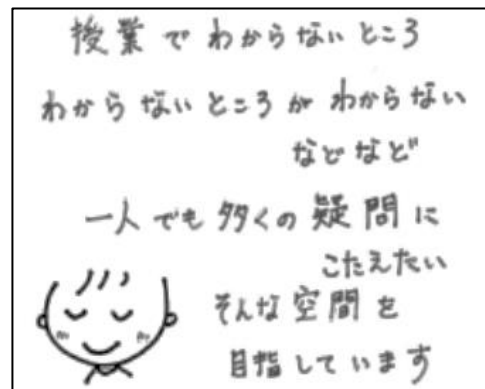 授業でわからないところ
わからないところがわからない
などなど
一人でも多くの疑問に
こたえたい
そんな空間を
目指しています